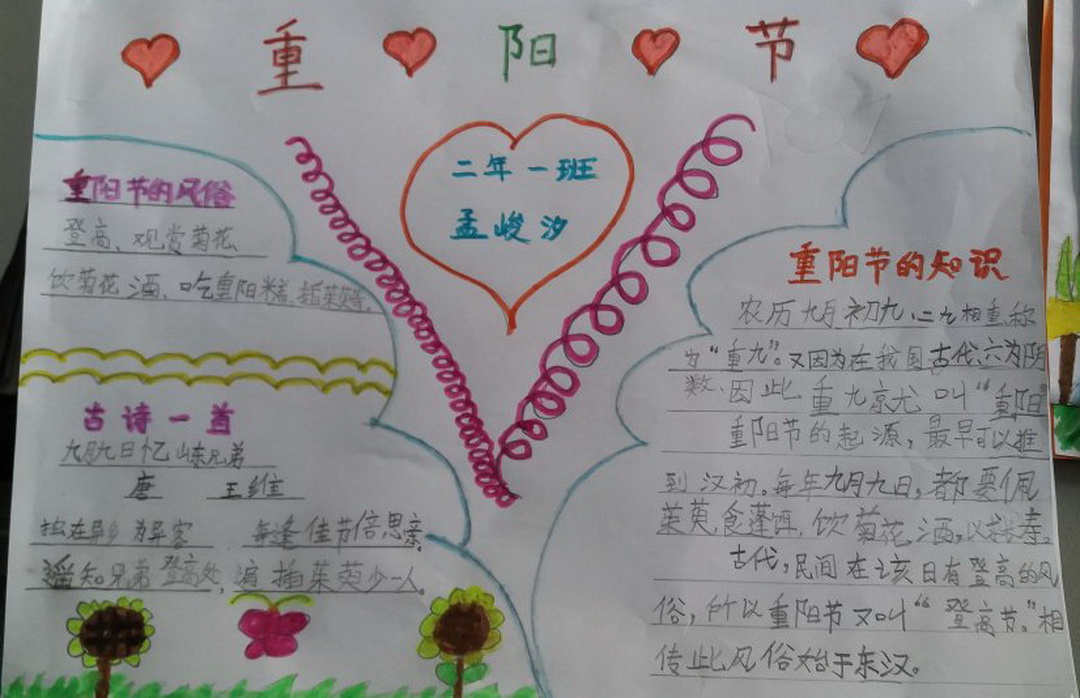 重 阳 节
二年一班
孟峻汐
重阳节的风俗
登高、观赏菊花
饮菊花酒、吃重阳糕、插茱萸
古诗一首
九月九日忆山东兄弟
唐 王维
独在异乡为异客 每逢佳节倍思亲。
遥知兄弟登高处,遍插茱萸少一人。
重阳节的知识
农历九月初九,二九相重,称
为“重九”。又因为在我国古代,六为阴
数、因此重九 叫“重阳”
重阳节的起源,最早可以推
到汉初。每年九月九日,都要佩
茱萸,食蓬饵,饮菊花酒,以求寿。
古代,民间在该日有登高的风
俗,所以重阳节又叫“登高节”。相
传此风俗始于东汉。